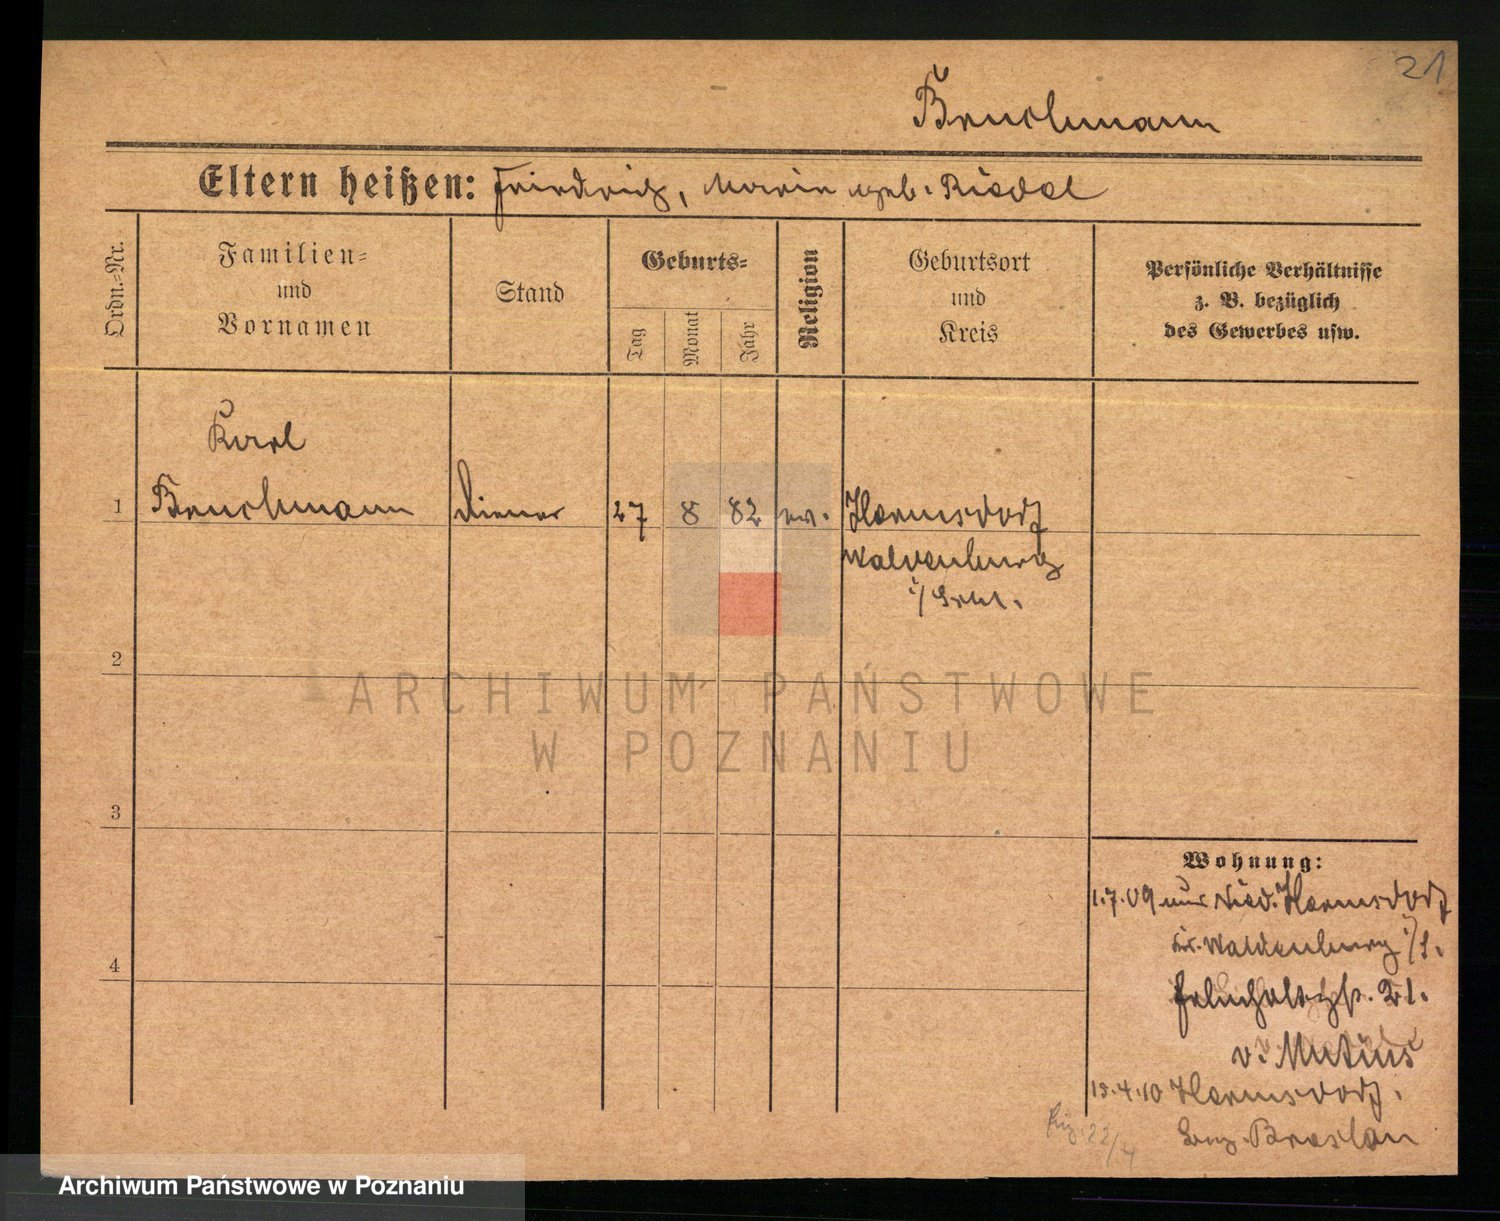 21
Bruchmann
Eltern heißen: Friedrich, Marie geb. Riedel
Ordn.-Nr.
Familien-
und
Vornamen
Stand
Geburts-
Tag
Monat
Jahr
Religion
Geburtsort
und
Kreis
Persönliche Verhältnisse
z. B. bezüglich
des Gewerbes usw.
Karl
1 Bruchmann Diener 27 8 82 ev. Hermsdorf
Waldenburg
i/Schl.
2
3
4
Wohnung:
1.7.09 aus Nied. Hermsdorf
Kr. Waldenburg i/S.
21.
v. Mutius
15.4.10 Hermsdorf.
Bez. Breslau
22/4
ARCHIWUM PAŃSTWOWE
W POZNANIU
Archiwum Państwowe w Poznaniu